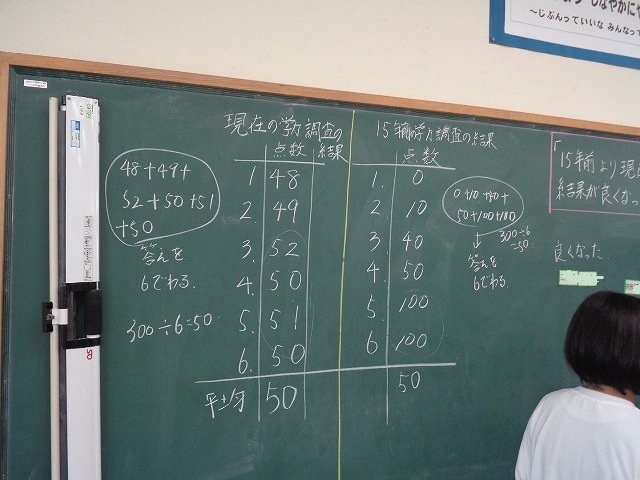 しなやかに
～じぶんっていいな みんなって
現在の学力調査の結果
点数
1. 48
2. 49
3. 52
4. 50
5. 51
6. 50
平均 50
48+49+
52+50+51
+50
答えを
6でわる
300÷6=50
15年前の学力調査の結果
点数
1. 0
2. 10
3. 40
4. 50
5. 100
6. 100
50
0+10+40+
50+100+100
↓ 300÷6
=50
答えを
6でわる
「15年前より現
結果が良くなっ
良くなった